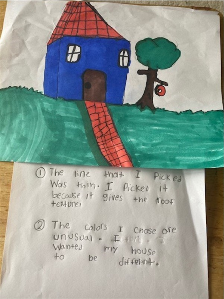 ① The line that I Picked
Was thin. I Picked it
because it gives the roof
texture.
② The colors I chose are
unusual. I
wanted my house
to be different.